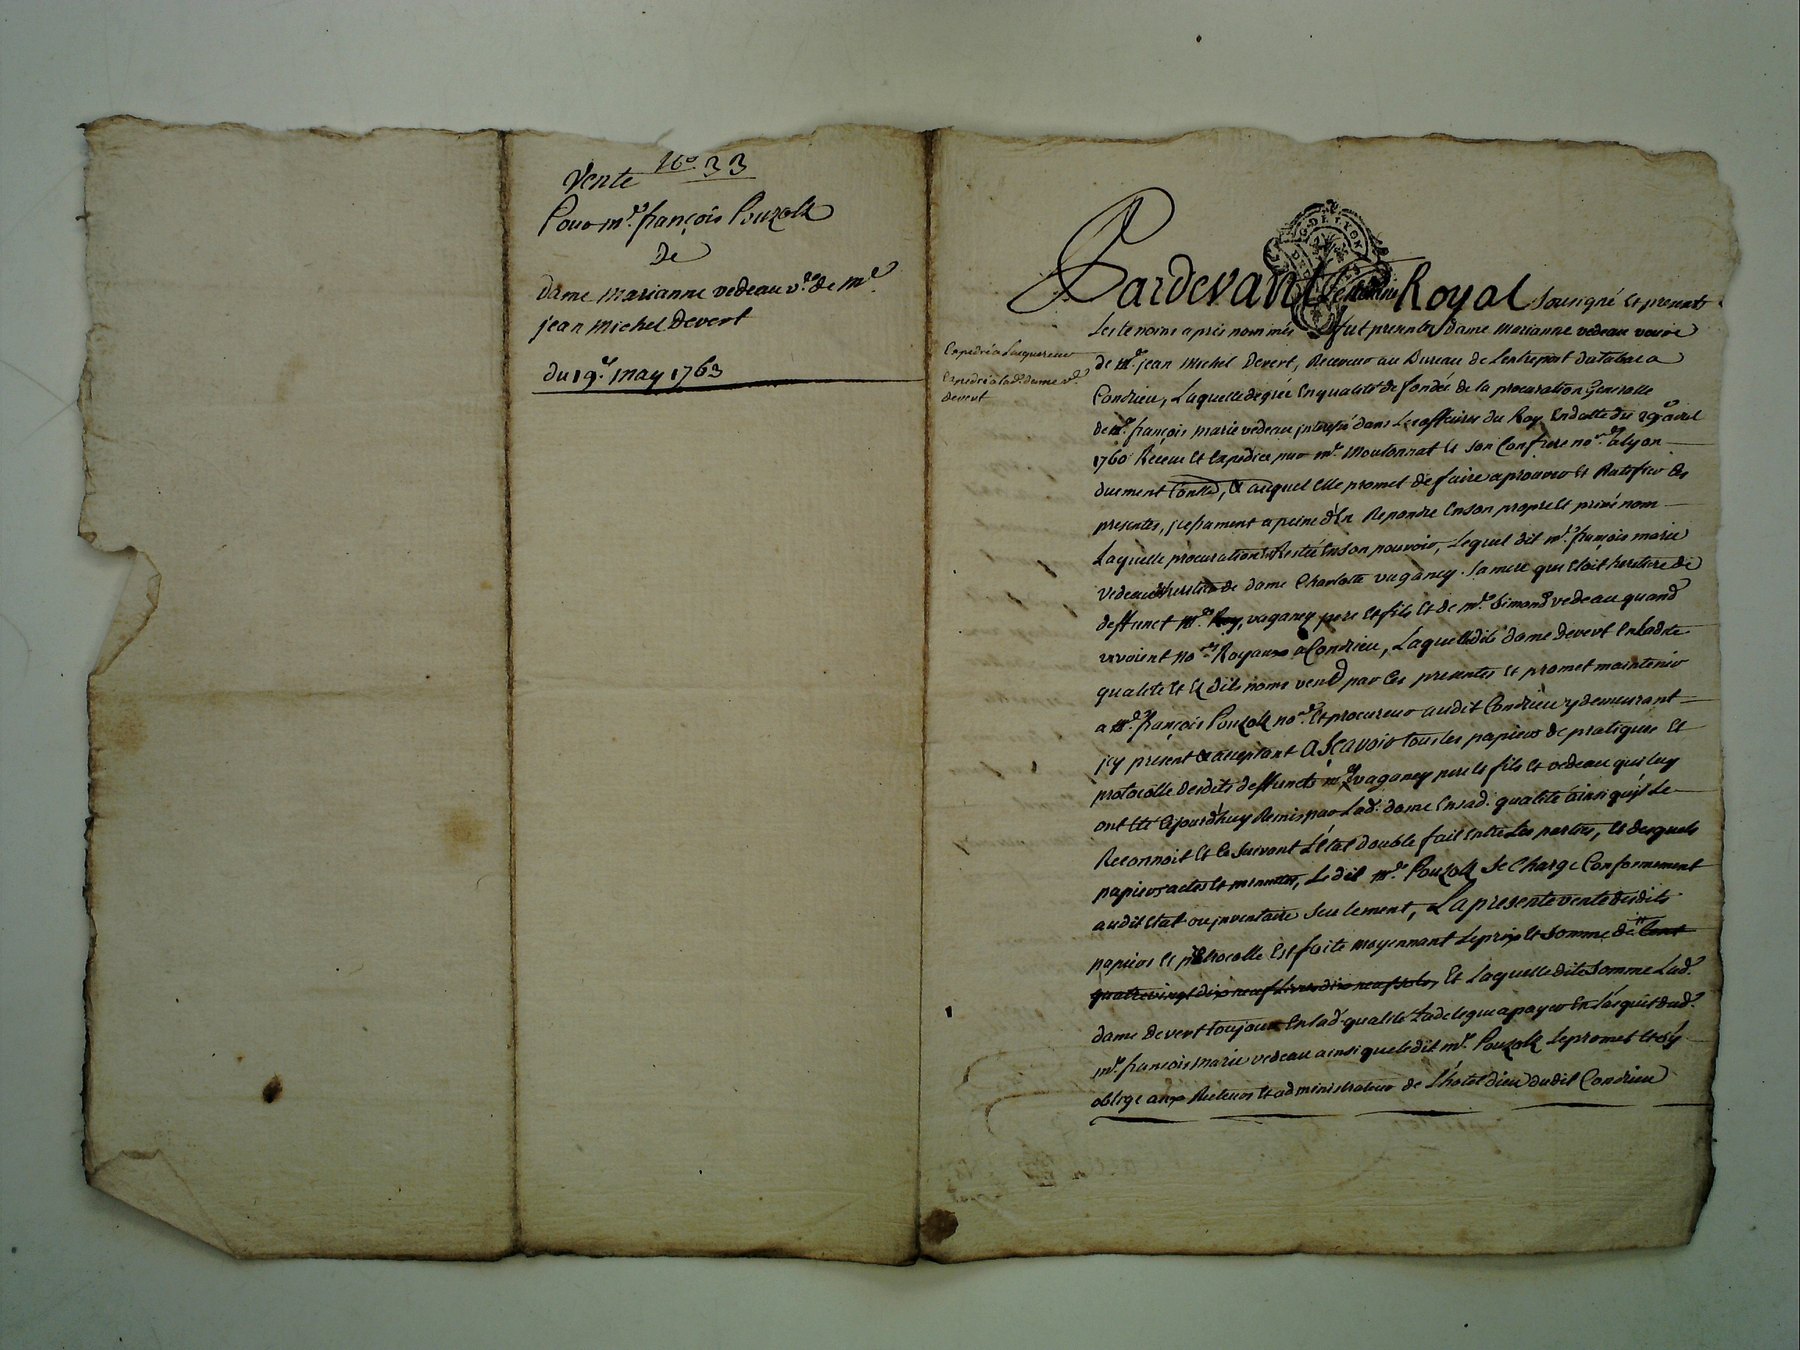 Vente No. 33
Pour mr. françois Pouzolz
de
dame marianne vedeau ve. de mr.
jean michel Devert
du 19e. may 1763
G. DE LYON
Pardevant Le notaire Royal sousigné et presents
Les temoins apres nommés fut presente dame marianne vedeau veuve
Expedié a Lacquereur
Expedié a lad. dame ve.
devert
de mr. jean michel Devert, Receveur au Bureau de Lentrepost du tabac a
Condrieu, Laquelle de gré En qualité de fondée de la procuration Generalle
de mr. françois marie vedeau jnteressé dans Les affaires du Roy En datte du 29e avril
1760 Receue Et Expediée par me. Moutonnat Et son Confrere nores. a lyon
duement Contlée, Et auquel Elle promet de faire aprouver Et Ratifier Les
presentes, a peine d'En Repondre En son propre Et privé nom
Laquelle procuration Restée En son pouvoir, Lequel dit mr. françois marie
vedeau heritier de dame Charlotte vaganey sa mere qui Etoit heritiere de
deffunct mes. vaganey pere Et fils Et de me. Simond vedeau quand
vivoient nores. Royaux a Condrieu, Laquelle dite dame devert En ladite
qualité Et Es dits noms vend par Ces presentes Et promet maintenir
a me. françois Pouzolz nore. Et procureur audit Condrieu y demeurant
jcy present Et acceptant ascavoir tous les papiers de pratiques Et
protocolle desdits deffuncts mes. vaganey pere Et fils Et vedeau qui luy
ont Eté Cejourdhuy Remis par Lad. dame En sad. qualité ainsi qu'jl Le
Reconnoit Et Ce suivant L'Etat double fait Entre Les parties, Et desquels
papiers actes Et minuttes, Le dit me. Pouzolz se Charge Conformement
audit Etat ou jnventaire seulement, La presente vente desdits
papiers Et protocolle Est faite moyennant Le prix Et somme de Cent
quatrevingt dix neuf Livres dix neuf sols, Et Laquelle dite somme Lad.
dame devert toujours En lad. qualité La delegue a payer En L'acquit dud.
mr. françois marie vedeau ainsi que le dit me. Pouzolz Le promet Et s'y
oblige aux Recteurs Et administrateurs de L'hotel dieu dudit Condrieu